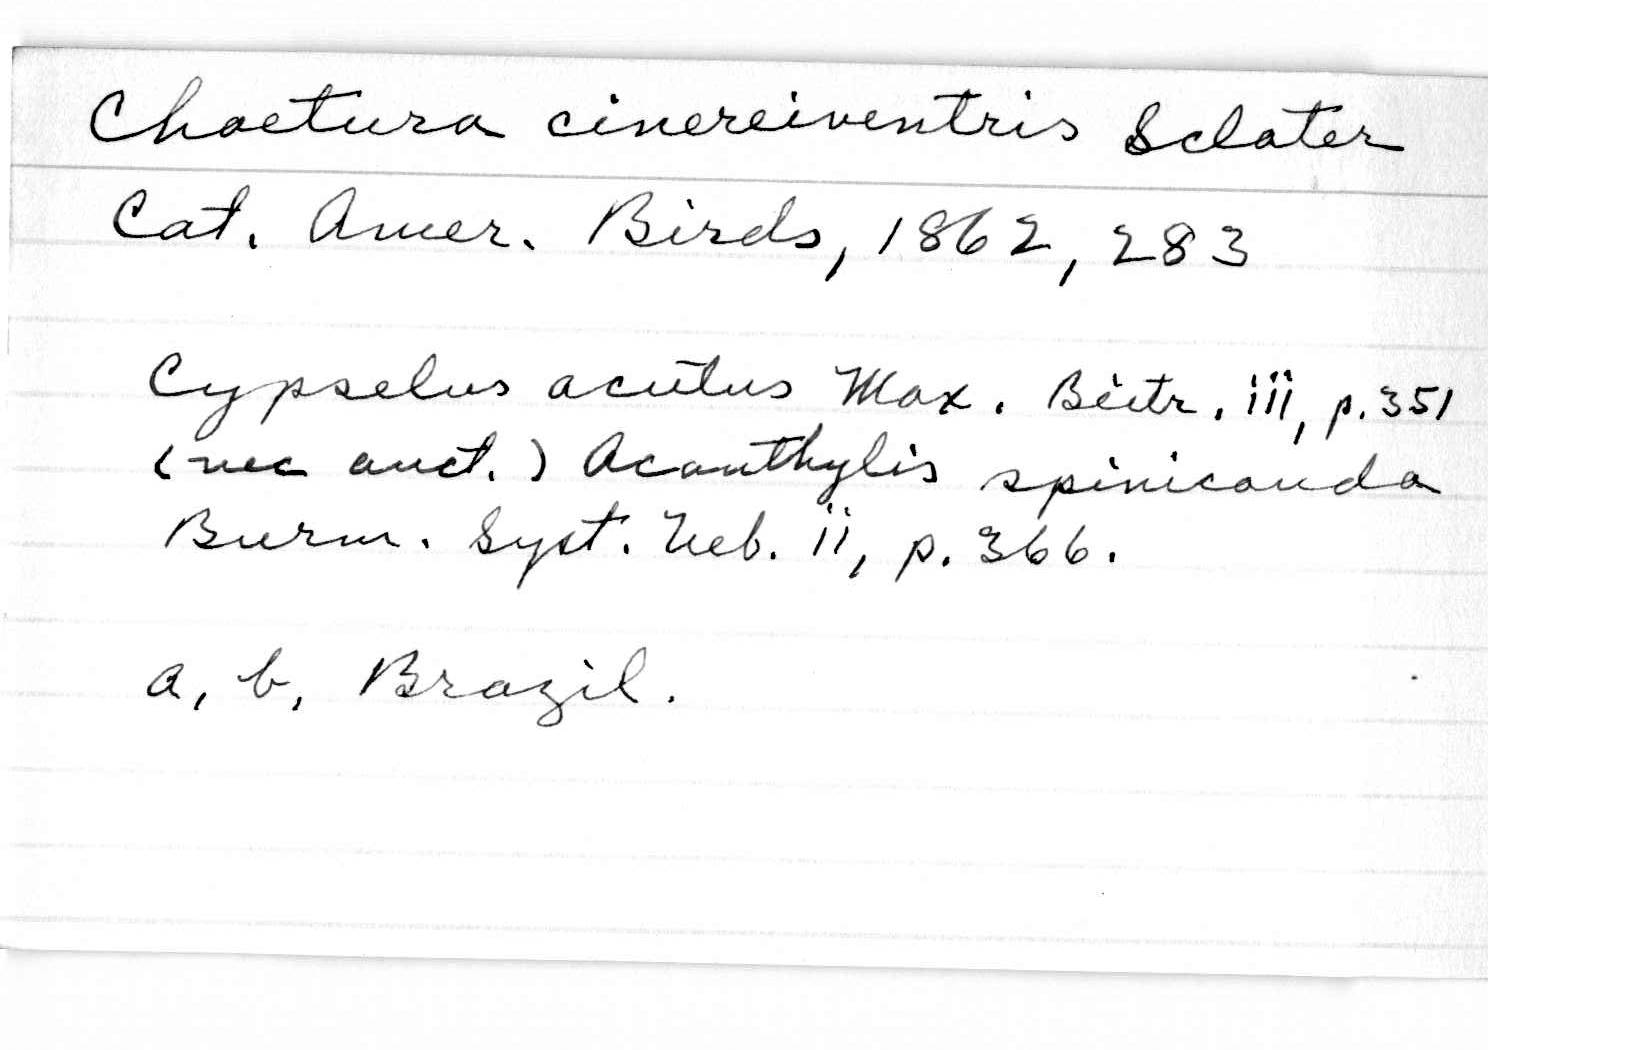 Chaetura cinereiventris Sclater
Cat. Amer. Birds, 1862, 283
Cypselus acutus Max. Beitr. iii, p. 351
(nec auct.) Acanthylis spinicauda
Burm. Syst. Ueb. ii, p. 366.
a, b, Brazil.